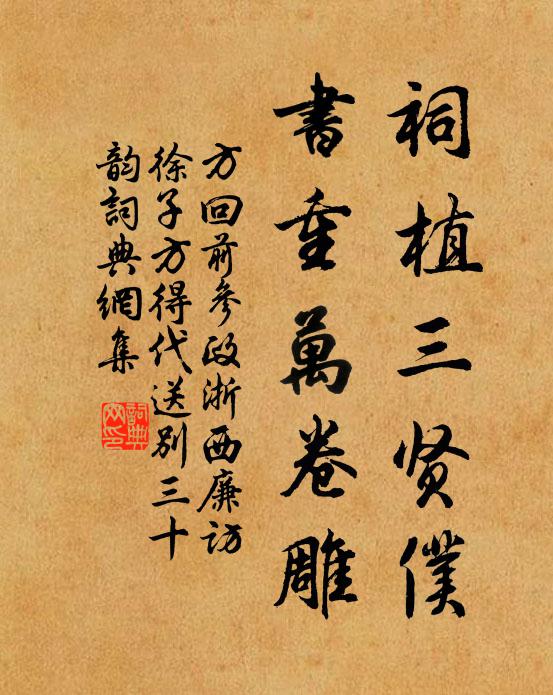 祠植三贤僕
書重萬卷雕
方回前參政浙西廉訪
徐子方得代送別三十
韵詞典網集
詞典網印